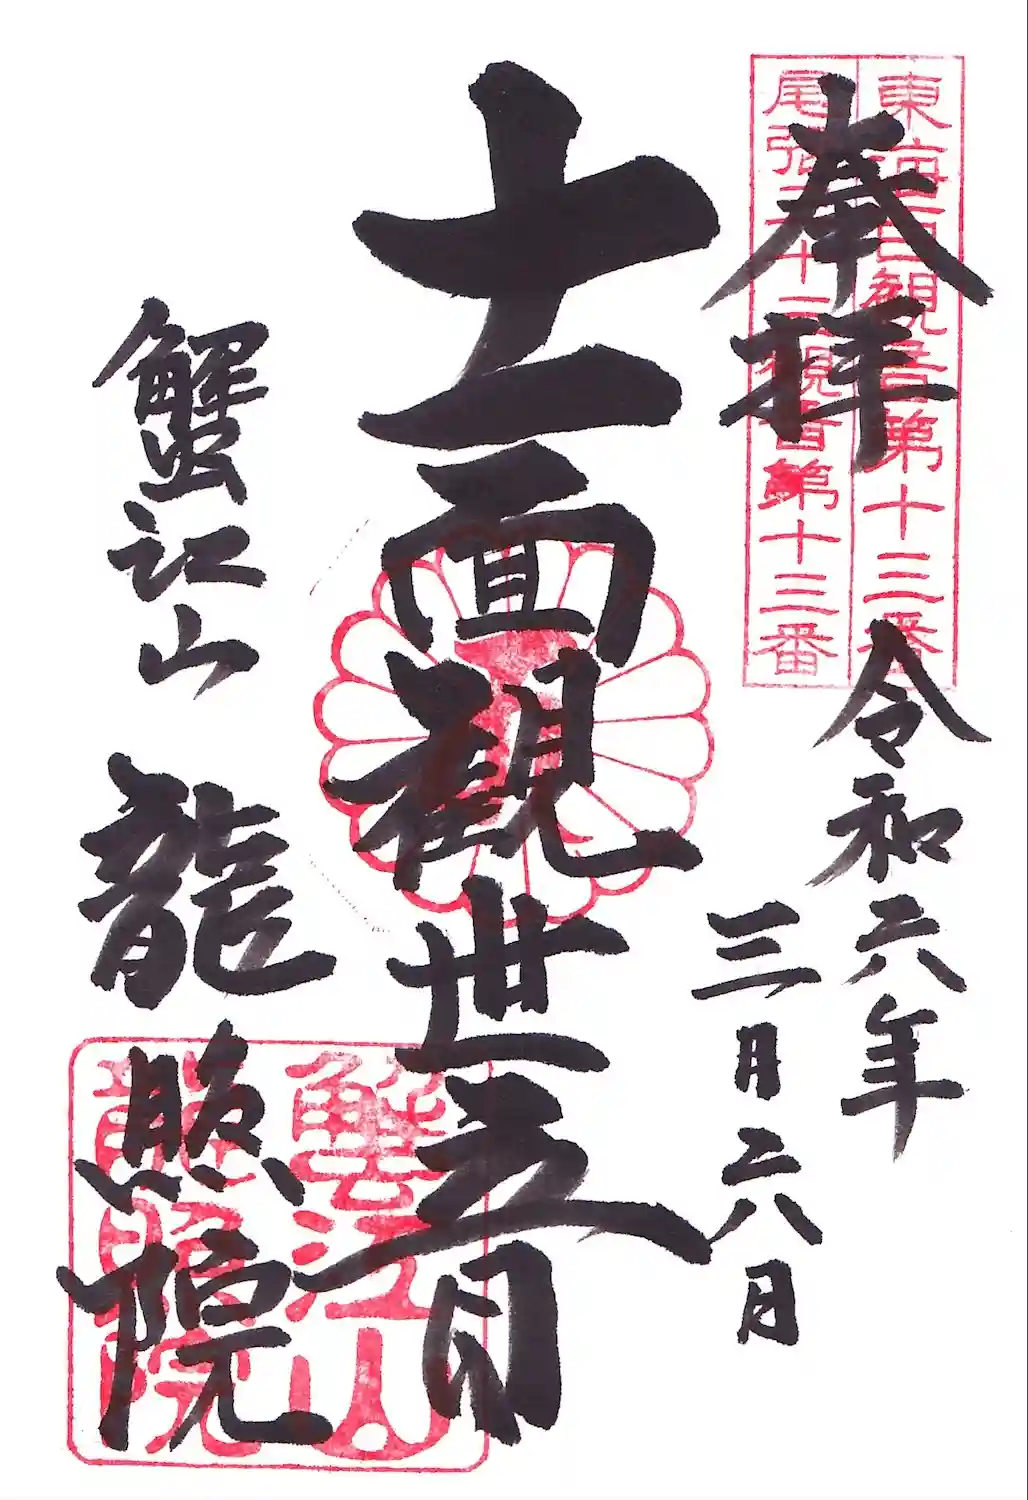 奉拝
東海百観音第十三番
尾張三十三観音第十三番
令和六年
三月六日
十一面観世音
蟹江山
龍照院
蟹江山
龍照院